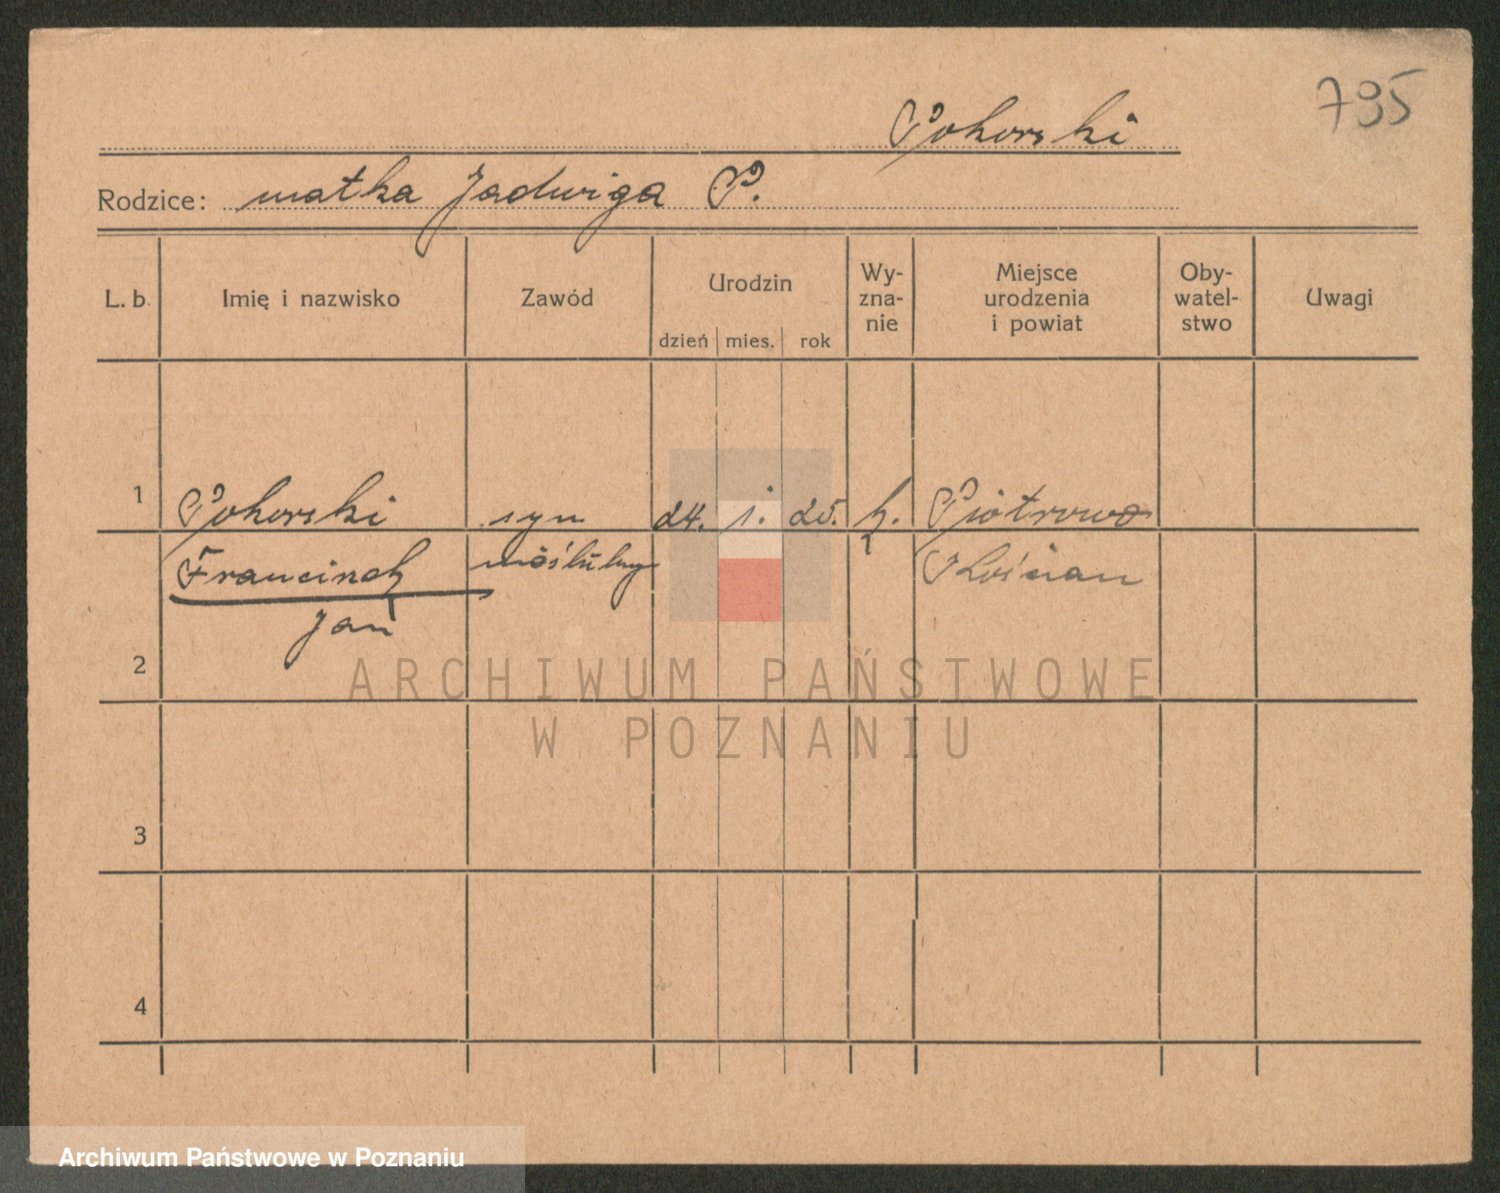 795
Pokorski
Rodzice: matka Jadwiga P.
L. b.
Imię i nazwisko
Zawód
Urodzin
dzień
mies.
rok
Wy-
zna-
nie
Miejsce
urodzenia
i powiat
Oby-
watel-
stwo
Uwagi
1
Pokorski
syn
24. 1. 25.
k.
Piotrowo
Franciszek
nieślubny
Kościan
Jan
2
3
4
ARCHIWUM PAŃSTWOWE
W POZNANIU
Archiwum Państwowe w Poznaniu